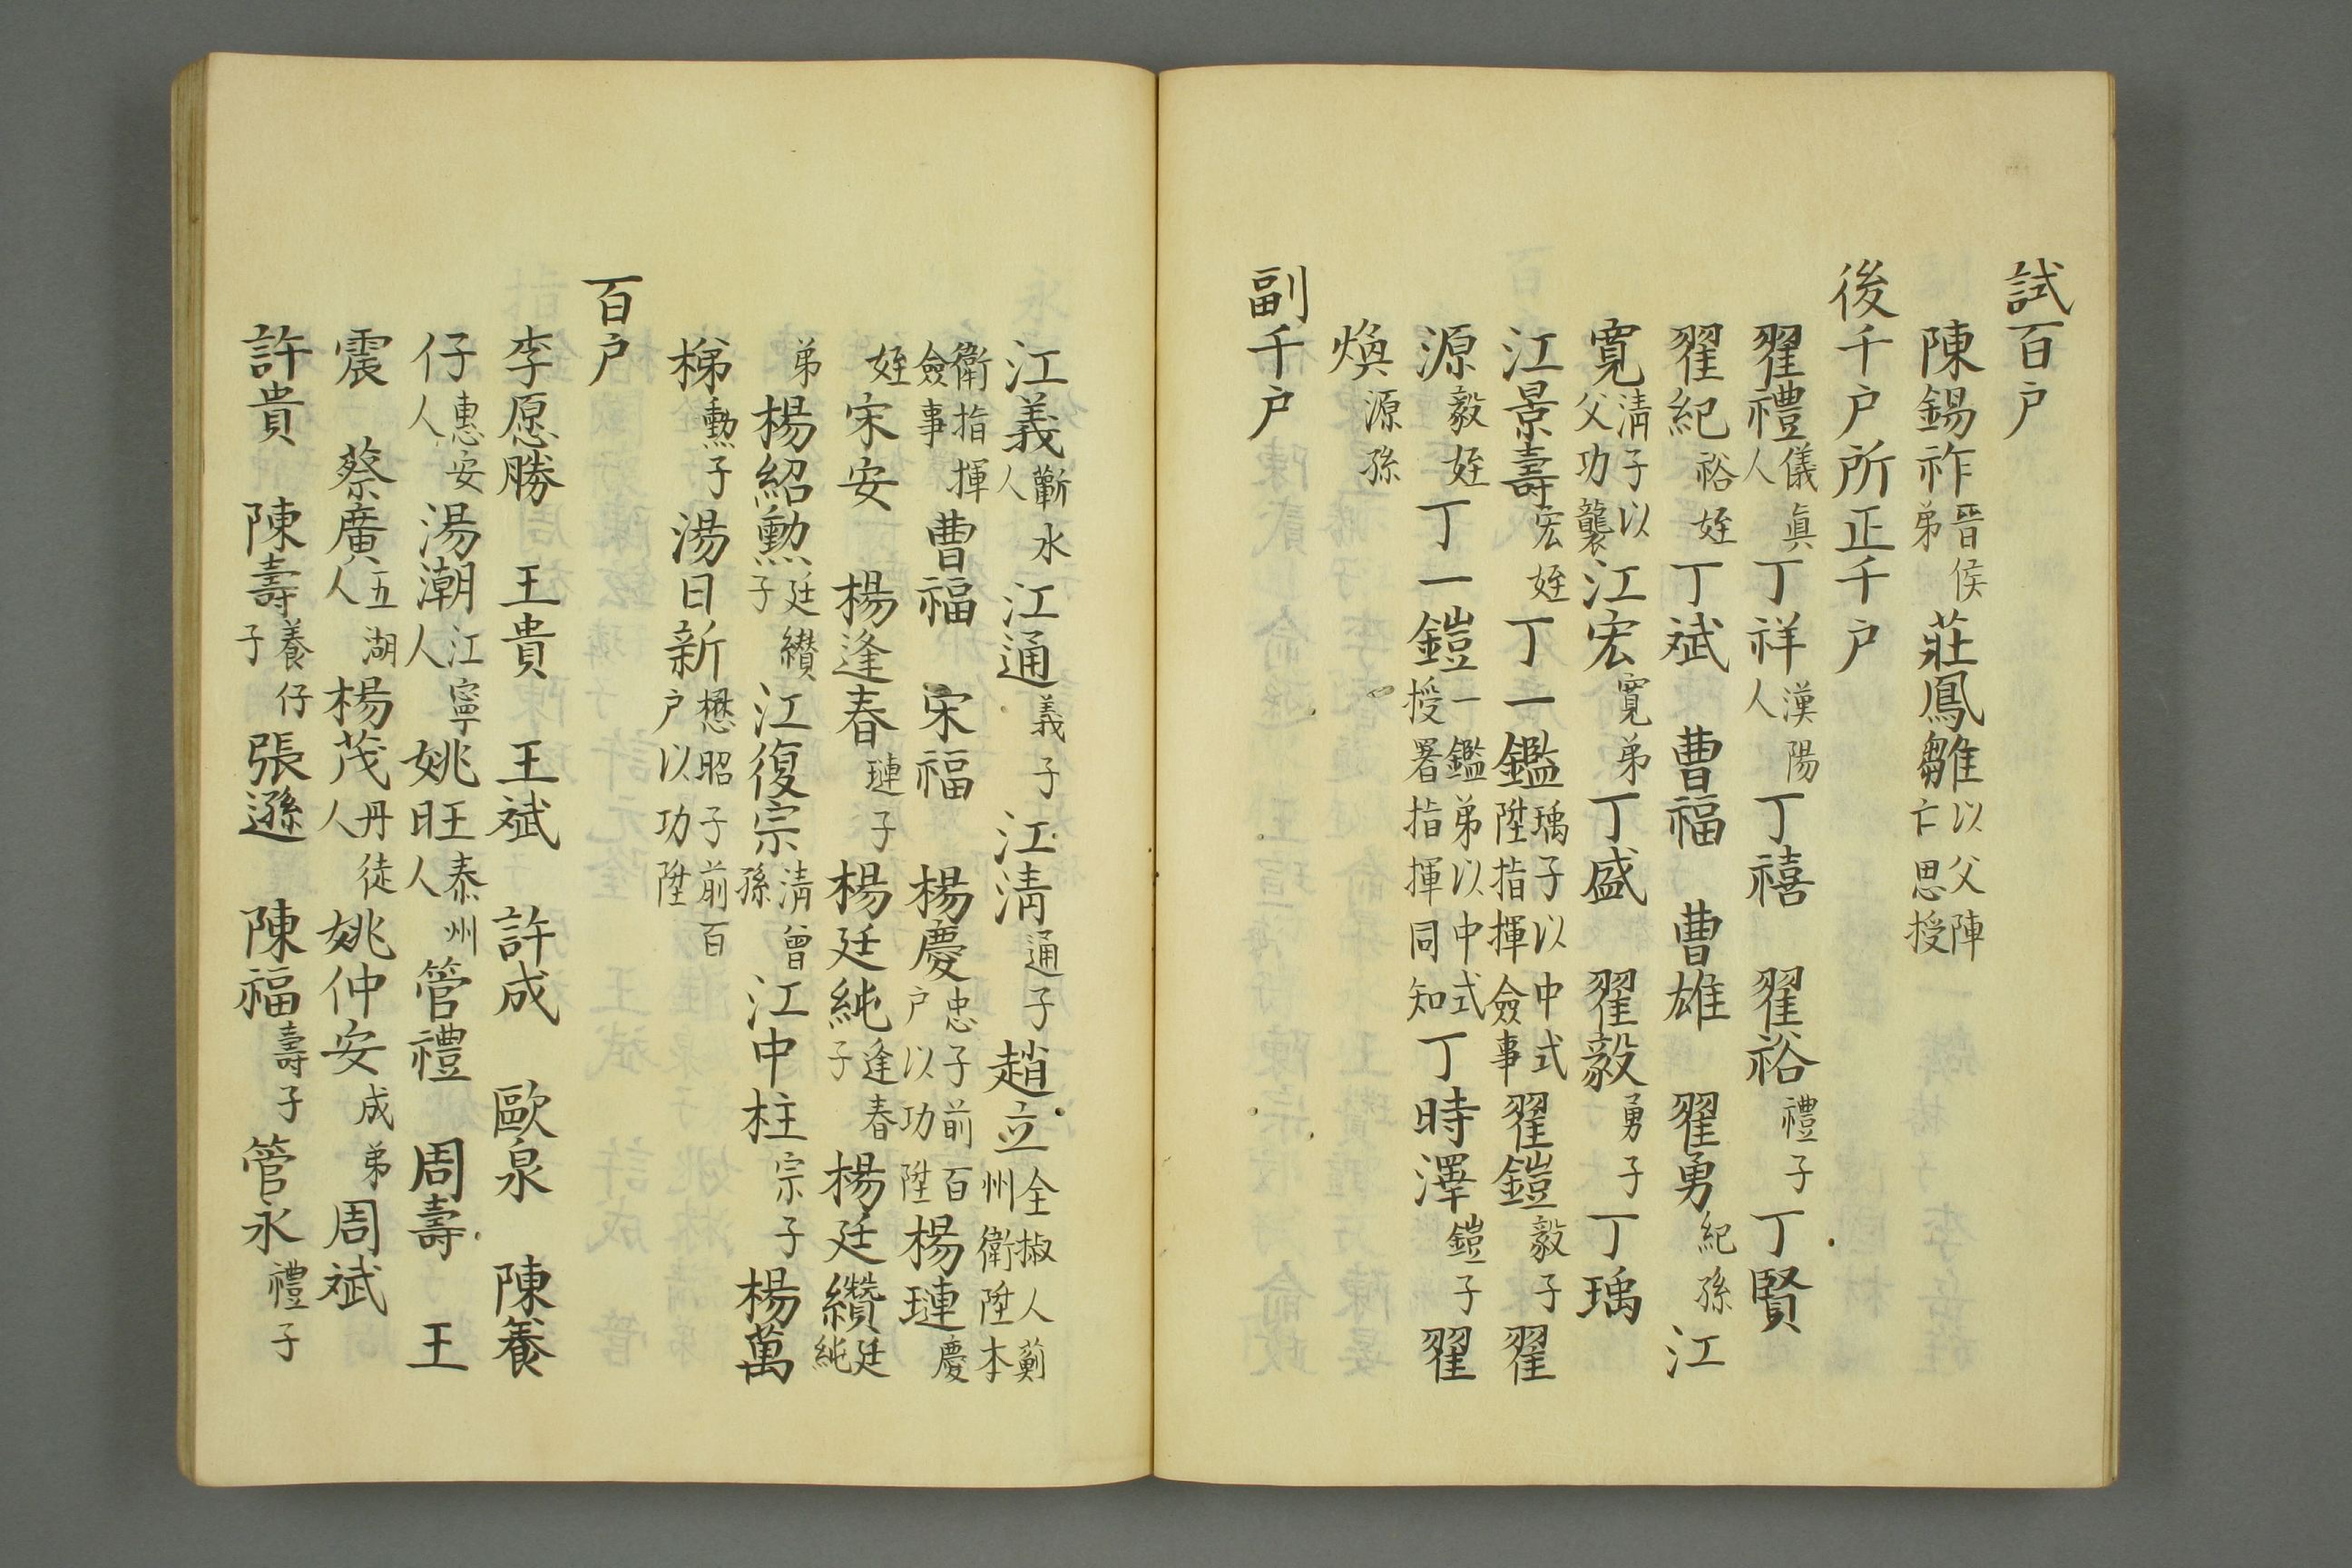 試百户
陳錫祚晉侯弟莊鳳雛以父陣亡思授
後千户所正千户
翟禮儀眞人丁祥漢陽人丁禧 翟裕禮子丁賢
翟紀裕姪丁斌 曹福 曹雄 翟勇紀孫江
寬淸子以父功襲江宏寬弟丁盛 翟毅勇子丁瑀
江景壽宏姪丁一鑑瑀子以中式陞指揮僉事翟鎧毅子翟
源毅姪丁一鎧一鑑弟以中式授署指揮同知丁時澤鎧子翟
煥源孫
副千户
江義蘄水人江通義子江淸通子趙立全椒人薊州衛陞本
衛指揮僉事曹福 宋福 楊慶忠子前百户以功陞楊璉慶
姪宋安 楊逢春璉子楊廷純逢春子楊廷纘廷純
弟楊紹勲廷纘子江復宗淸曾孫江中柱宗子楊萬
梯勲子湯日新懋昭子前百户以功陞
百户
李愿勝 王貴 王斌 許成 歐泉 陳養
仔惠安人湯潮江寧人姚旺泰州人管禮 周壽 王
震 蔡廣五湖人楊茂丹徒人姚仲安成弟周斌
許貴 陳壽養仔子張遜 陳福壽子管永禮子